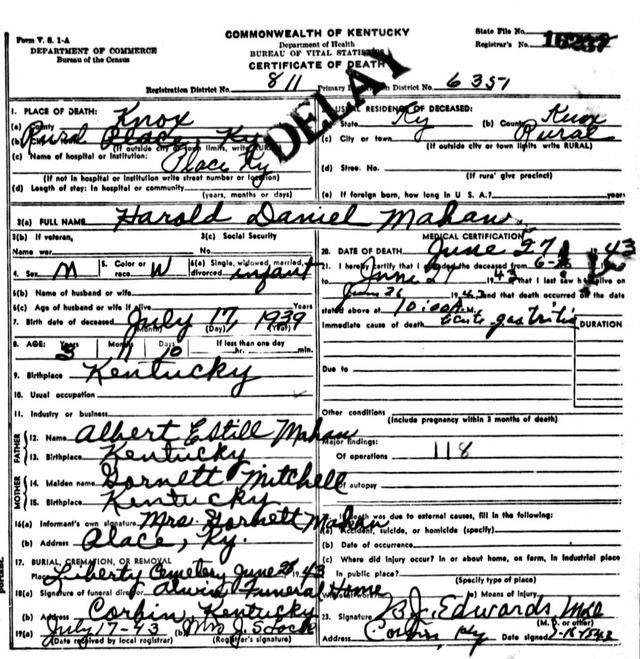 Form V. S. 1-A
DEPARTMENT OF COMMERCE
Bureau of the Census
COMMONWEALTH OF KENTUCKY
Department of Health
BUREAU OF VITAL STATISTICS
CERTIFICATE OF DEATH
State File No.
Registrar's No. 16237
DELAY
Registration District No. 811 Primary Registration District No. 6357
1. PLACE OF DEATH:
(a) County Knox
(b) Rural Place, Ky
(If outside city or town limits, write RURAL)
(c) Name of hospital or institution: Place Ky
(If not in hospital or institution write street number or location)
(d) Length of stay: In hospital or community
(years, months or days)
2. USUAL RESIDENCE OF DECEASED:
(a) State Ky (b) County Knox
(c) City or town Rural
(If outside city or town limits write RURAL)
(d) Street No.
(If rural give precinct)
(e) If foreign born, how long in U. S. A.? years
3(a) FULL NAME Harold Daniel Mahan
3(b) If veteran, Name war
3(c) Social Security No.
4. Sex M 5. Color or race W 6(a) Single, widowed, married, divorced infant
6(b) Name of husband or wife
6(c) Age of husband or wife if alive Years
7. Birth date of deceased July 17, 1939
(Month) (Day) (Year)
8. AGE: Years 3 Months 11 Days 10 If less than one day hr. min.
9. Birthplace Kentucky
10. Usual occupation
11. Industry or business
FATHER
12. Name Albert Estill Mahan
13. Birthplace Kentucky
MOTHER
14. Maiden name Gornett Mitchell
15. Birthplace Kentucky
16(a) Informant's own signature Mrs. Gornett Mahan
(b) Address Place, Ky.
17. BURIAL, CREMATION, OR REMOVAL
Place Liberty Cemetery June 28, 43
18(a) Signature of funeral director Funeral Home
(b) Address Corbin, Kentucky
19(a) July 17-43 (b) Mrs J.
(Date received by local registrar) (Registrar's signature)
MEDICAL CERTIFICATION
20. DATE OF DEATH June 27, 1943
21. I hereby certify that I attended the deceased from
June 27 1943 that I last saw alive on
June 26 1943 and that death occurred on the date
stated above at 10:00 A.M.
Immediate cause of death Acute gastritis
DURATION
Due to
Other conditions
(Include pregnancy within 3 months of death)
Major findings:
Of operations 118
Of autopsy
If death was due to external causes, fill in the following:
(a) Accident, suicide, or homicide (specify)
(b) Date of occurrence
(c) Where did injury occur? In or about home, on farm, in industrial place
In public place?
(Specify type of place)
(e) Means of injury
23. Signature B.J. Edwards
(M. D. or other)
Address Corbin, Ky Date signed